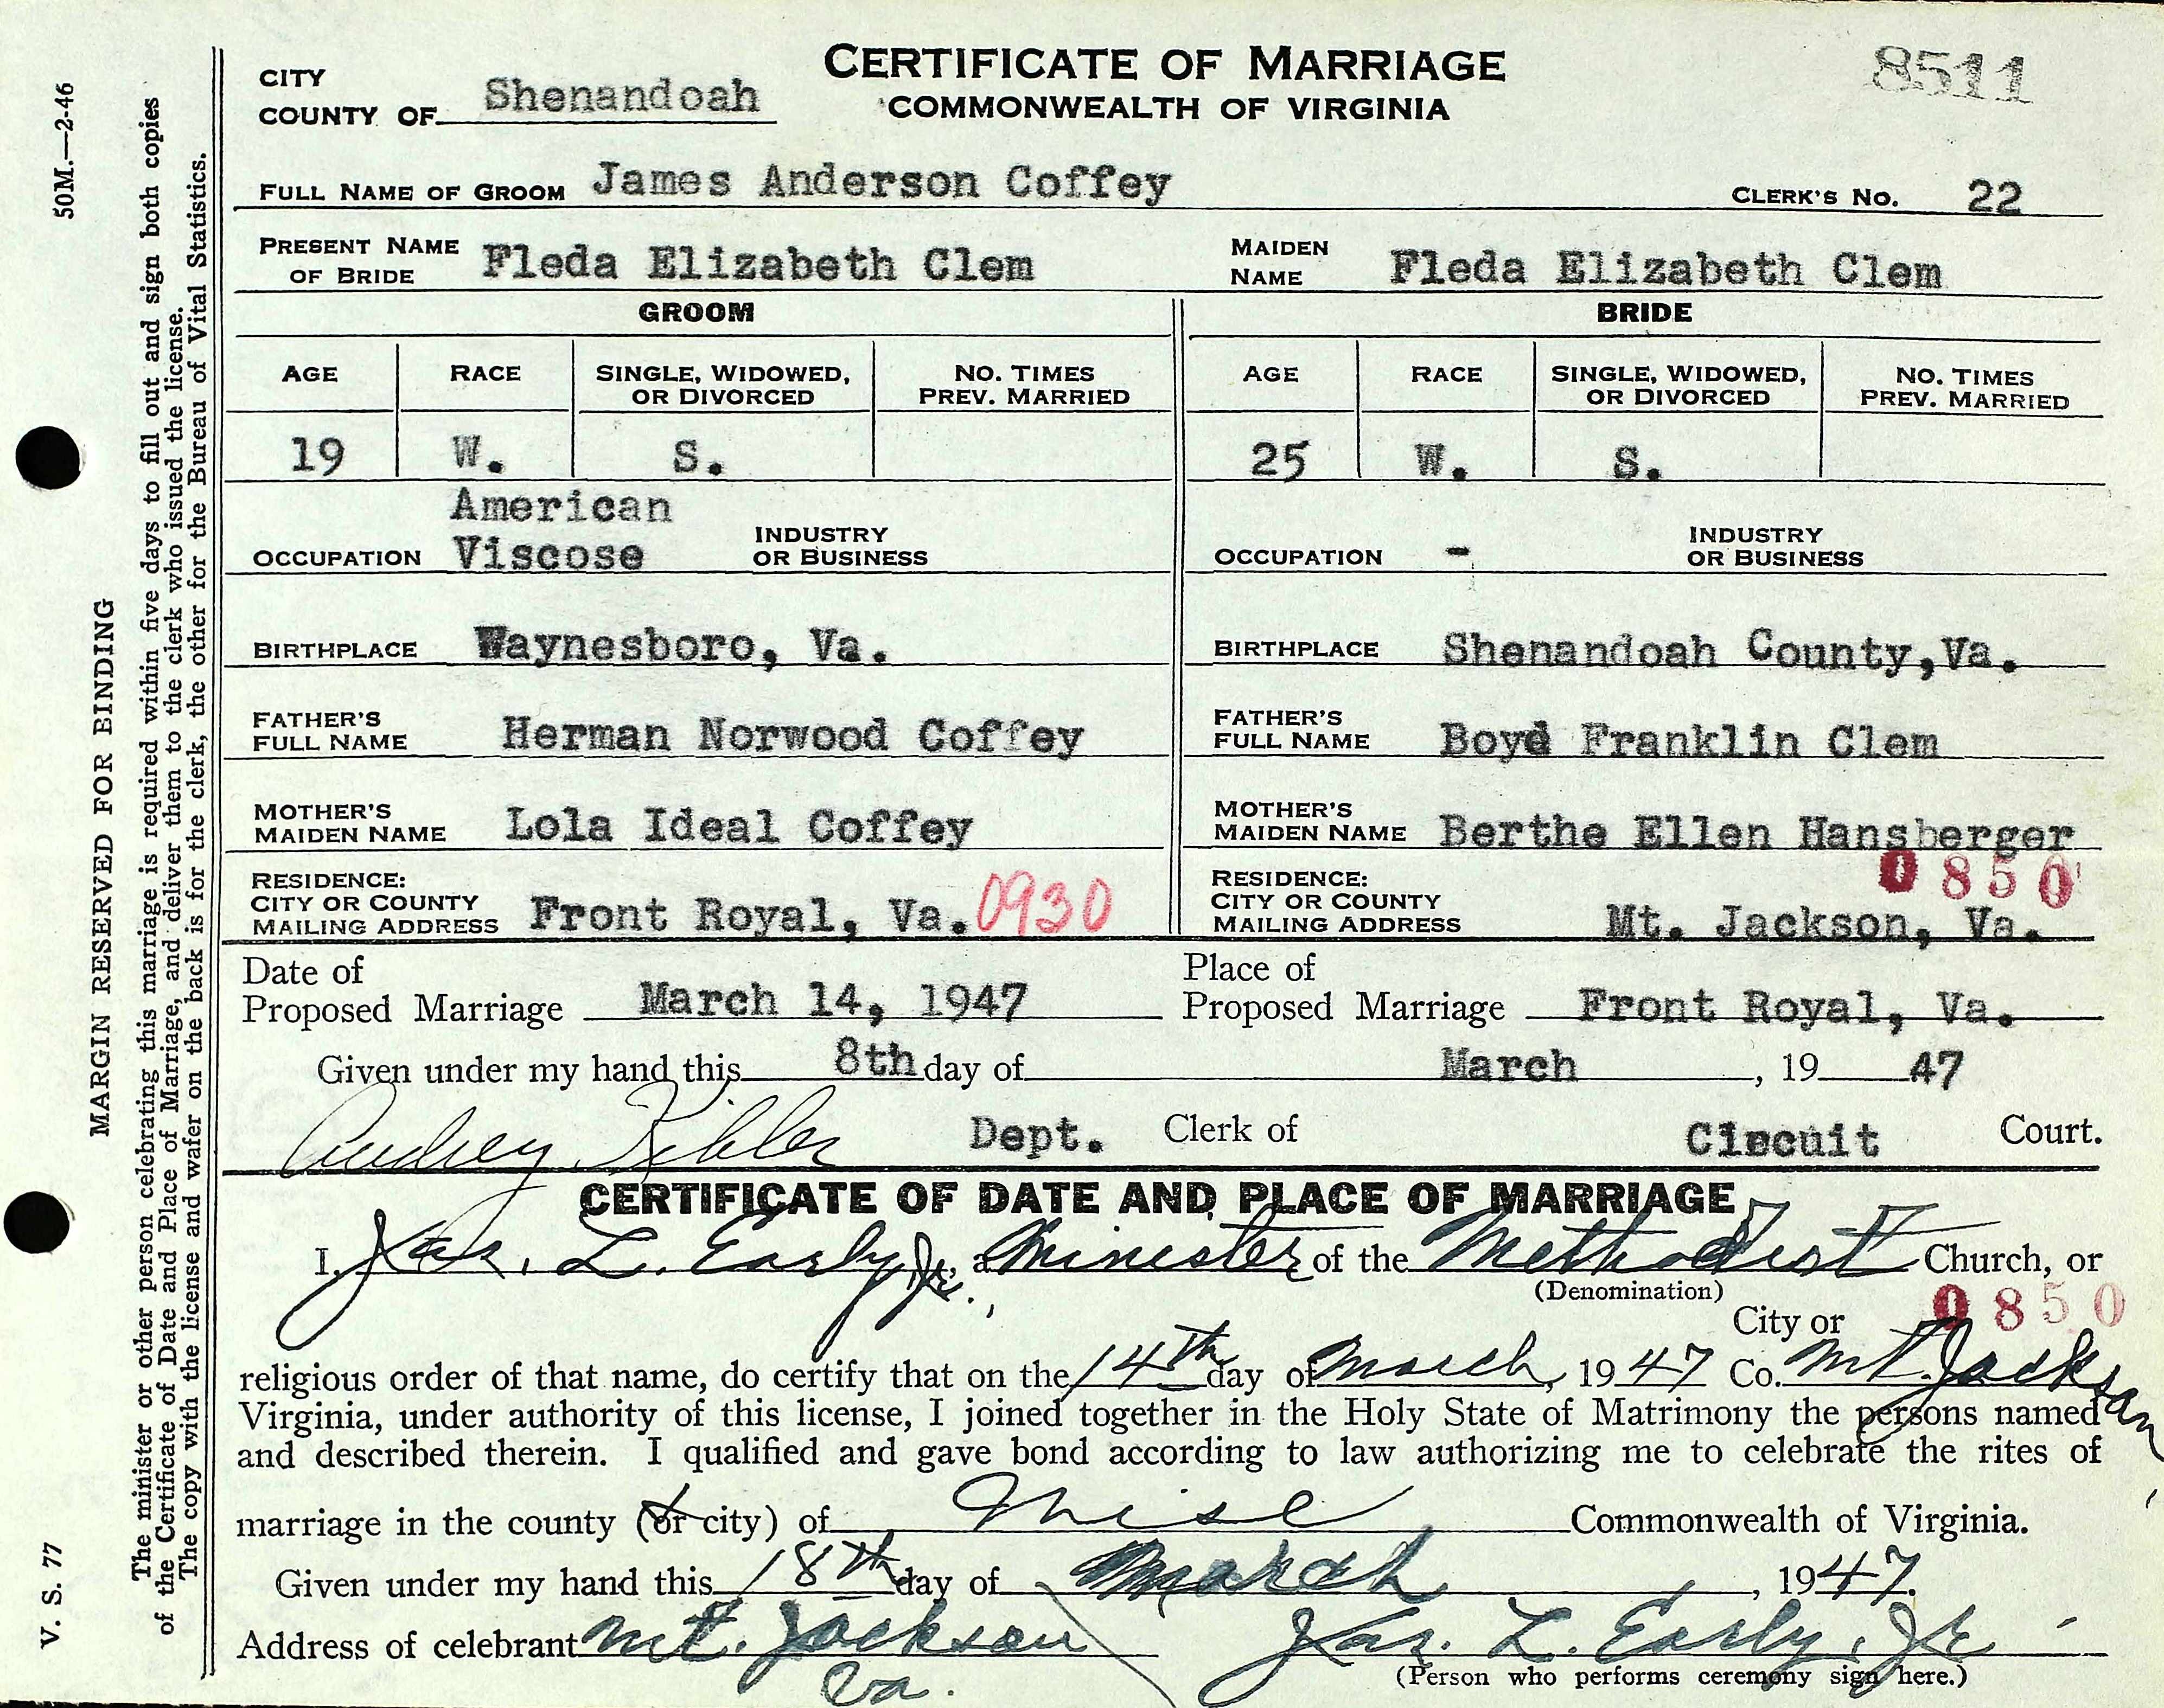 CERTIFICATE OF MARRIAGE
COMMONWEALTH OF VIRGINIA
8511
CITY
COUNTY OF Shenandoah
FULL NAME OF GROOM James Anderson Coffey CLERK'S NO. 22
PRESENT NAME OF BRIDE Fleda Elizabeth Clem MAIDEN NAME Fleda Elizabeth Clem
GROOM BRIDE
AGE RACE SINGLE, WIDOWED, OR DIVORCED NO. TIMES PREV. MARRIED AGE RACE SINGLE, WIDOWED, OR DIVORCED NO. TIMES PREV. MARRIED
19 W. S. 25 W. S.
OCCUPATION American Viscose INDUSTRY OR BUSINESS OCCUPATION - INDUSTRY OR BUSINESS
BIRTHPLACE Waynesboro, Va. BIRTHPLACE Shenandoah County,Va.
FATHER'S FULL NAME Herman Norwood Coffey FATHER'S FULL NAME Boyd Franklin Clem
MOTHER'S MAIDEN NAME Lola Ideal Coffey MOTHER'S MAIDEN NAME Berthe Ellen Hansberger
RESIDENCE: CITY OR COUNTY MAILING ADDRESS Front Royal, Va. 0930 RESIDENCE: CITY OR COUNTY MAILING ADDRESS Mt. Jackson, Va. 0850
Date of Proposed Marriage March 14, 1947 Place of Proposed Marriage Front Royal, Va.
Given under my hand this 8th day of March, 19 47
Audrey Kibler Dept. Clerk of Circuit Court.
CERTIFICATE OF DATE AND PLACE OF MARRIAGE
I, Jas. L. Early, Jr., a Minister of the Methodist Church, or
(Denomination)
City or 0850
religious order of that name, do certify that on the 14th day of March, 1947 Co. Mt. Jackson,
Virginia, under authority of this license, I joined together in the Holy State of Matrimony the persons named
and described therein. I qualified and gave bond according to law authorizing me to celebrate the rites of
marriage in the county (or city) of Wise Commonwealth of Virginia.
Given under my hand this 18th day of March, 1947.
Address of celebrant Mt. Jackson Jas. L. Early, Jr.
Va. (Person who performs ceremony sign here.)
50M.—2-46
MARGIN RESERVED FOR BINDING
V. S. 77
The minister or other person celebrating this marriage is required within five days to fill out and sign both copies
of the Certificate of Date and Place of Marriage, and deliver them to the clerk who issued the license.
The copy with the license and wafer on the back is for the clerk, the other for the Bureau of Vital Statistics.